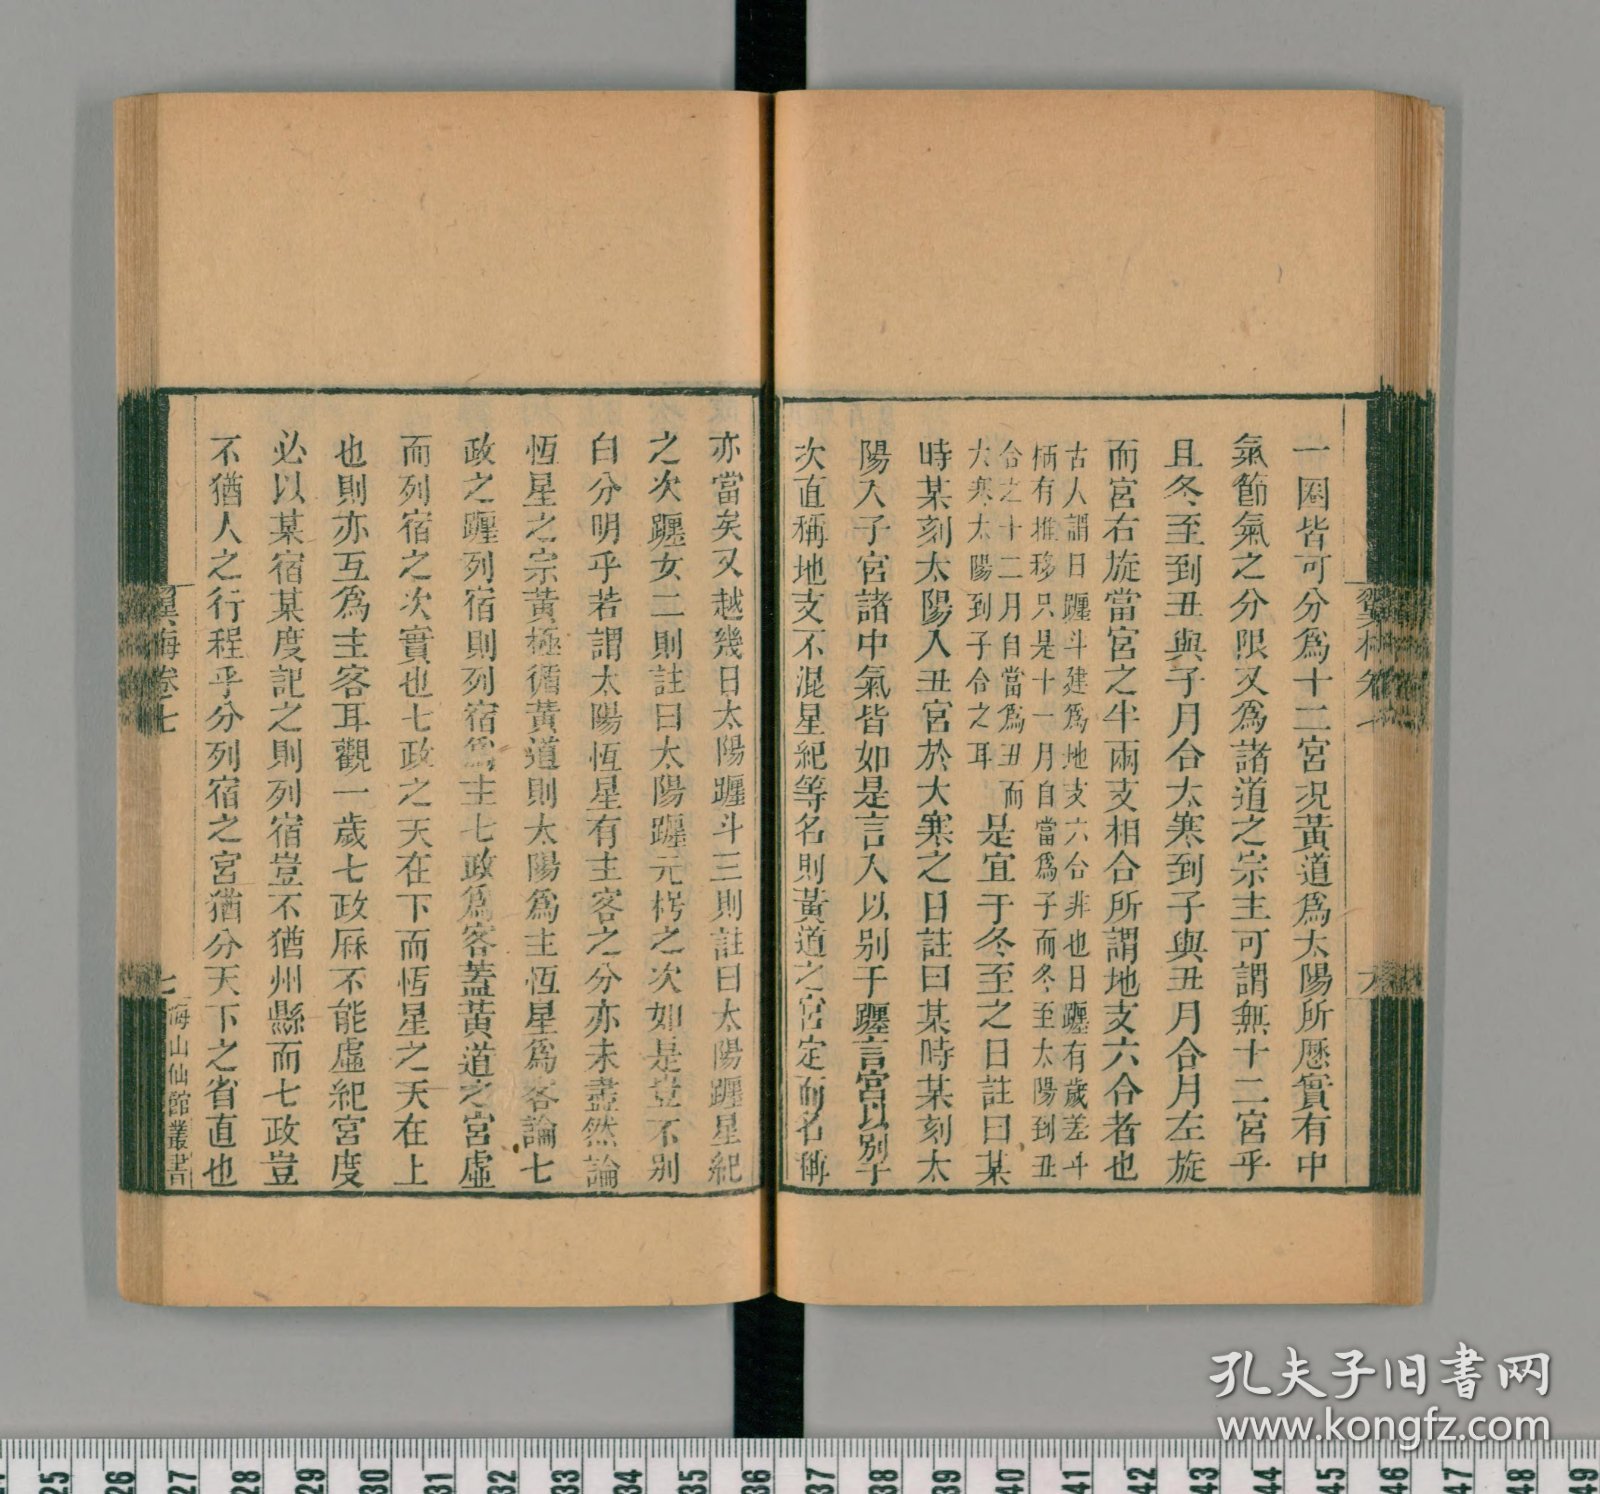 一圈皆可分爲十二宮况黃道爲太陽所厯實有中
氣節氣之分限又爲諸道之宗主可謂無十二宮乎
且冬至到丑與子月合大寒到子與丑月合月左旋
而宮右旋當宮之半兩支相合所謂地支六合者也
古人謂日躔斗建爲地支六合非也日躔有歲差斗
柄有推移只是十一月自當爲子而冬至太陽到丑
合之十二月自當爲丑而
大寒太陽到子合之耳
是宜于冬至之日註曰某
時某刻太陽入丑宮於大寒之日註曰某時某刻太
陽入子宮諸中氣皆如是言入以别于躔言宮以别于
次直稱地支不混星紀等名則黃道之宮定而名稱
亦當矣又越幾日太陽躔斗三則註曰太陽躔星紀
之次躔女二則註曰太陽躔元枵之次如是豈不别
白分明乎若謂太陽恆星有主客之分亦未盡然論
恆星之宗黃極循黃道則太陽爲主恆星爲客論七
政之躔列宿則列宿爲主七政爲客蓋黃道之宮虛
而列宿之次實也七政之天在下而恆星之天在上
也則亦互爲主客耳觀一歲七政厤不能虛紀宮度
必以某宿某度記之則列宿豈不猶州縣而七政豈
不猶人之行程乎分列宿之宮猶分天下之省直也
翼梅卷七
七
海山仙館叢書
孔夫子旧书网
www.kongfz.com
25 26 27 28 29 30 31 32 33 34 35 36 37 38 39 40 41 42 43 44 45 46 47 48 49